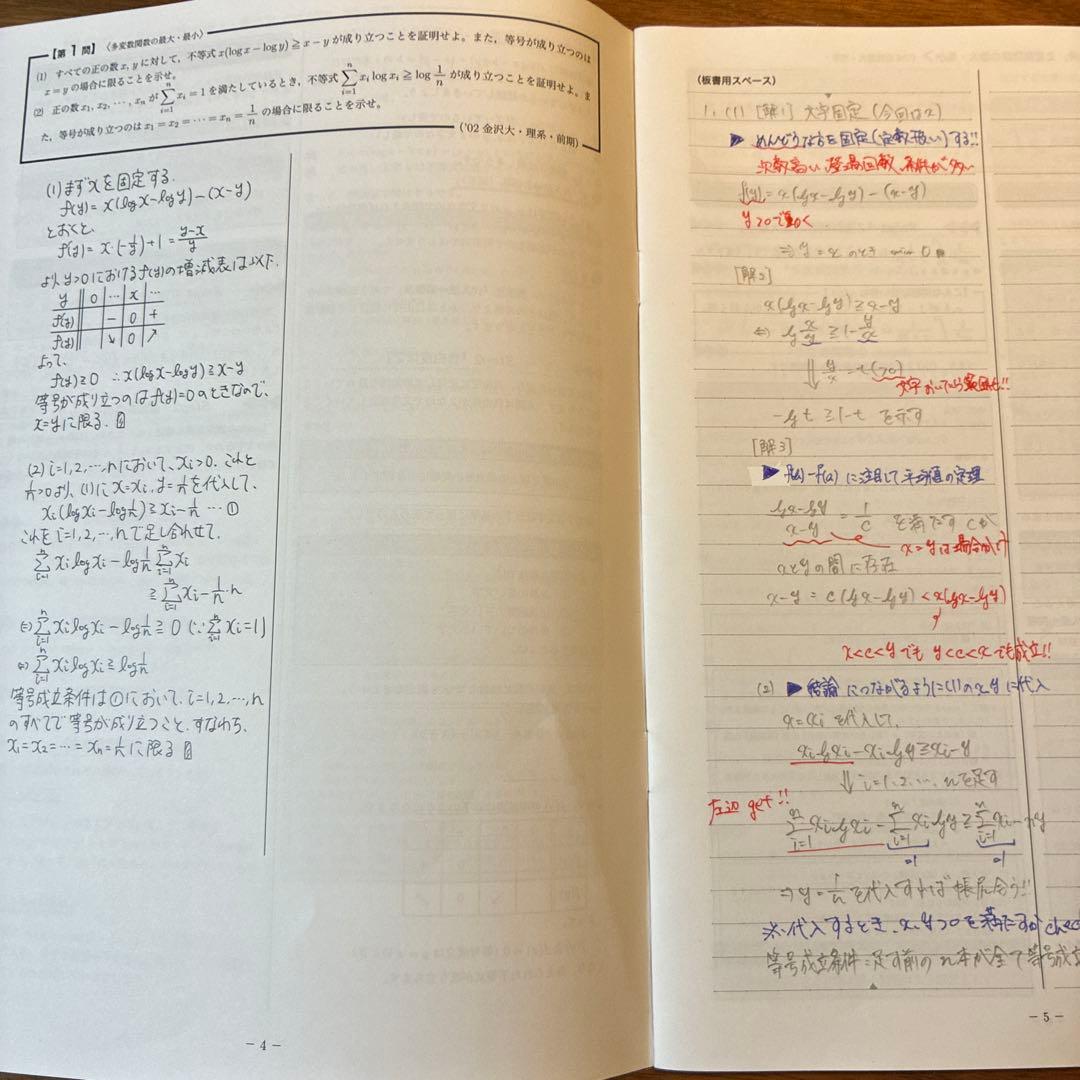 【第1問】〈多変数関数の最大・最小〉
(1) すべての正の数x, yに対して，不等式x(log x − log y) ≧ x − yが成り立つことを証明せよ。また，等号が成り立つのは
x = yの場合に限ることを示せ。
(2) 正の数x₁, x₂, ⋯, xₙが∑_{i=1}^{n} xᵢ = 1を満たしているとき，不等式∑_{i=1}^{n} xᵢ log xᵢ ≧ log 1/n が成り立つことを証明せよ。ま
た，等号が成り立つのはx₁ = x₂ = ⋯ = xₙ = 1/n の場合に限ることを示せ。
('02 金沢大・理系・前期)
(1) まずxを固定する.
f(y) = x(log x − log y) − (x − y)
とおくと、
f'(y) = x・(−1/y) + 1 = (y−x)/y
よりy>0におけるf(y)の増減表は以下.
y 0 ⋯ x ⋯
f'(y) − 0 +
f(y) ↘ 0 ↗
よって、
f(y) ≧ 0 ∴ x(log x − log y) ≧ x − y
等号が成り立つのはf(y)=0のときなので、
x=yに限る.
(2) i=1,2,⋯,nにおいて、xᵢ>0. これと
1/n>0より、(1)にx=xᵢ, y=1/nを代入して、
xᵢ(log xᵢ − log 1/n) ≧ xᵢ − 1/n ⋯ ①
これをi=1,2,⋯,nで足し合わせて、
∑_{i=1}^{n} xᵢ log xᵢ − log 1/n ∑_{i=1}^{n} xᵢ
≧ ∑_{i=1}^{n} xᵢ − 1/n・n
⇔ ∑_{i=1}^{n} xᵢ log xᵢ − log 1/n ≧ 0 (∵ ∑_{i=1}^{n} xᵢ = 1)
⇔ ∑_{i=1}^{n} xᵢ log xᵢ ≧ log 1/n
等号成立条件は①において、i=1,2,⋯,n
のすべてで等号が成り立つこと、すなわち、
x₁=x₂=⋯=xₙ=1/nに限る
− 4 −
(板書用スペース)
1. (1) [解1] 文字固定 (今回はx)
▶ めんどうな方を固定(定数扱い)する!!
次数高い、登場回数、条件が多い
f(y) = x(log x − log y) − (x − y)
y>0で動く
⇒ y = x のとき min 0
[解2]
x(log x − log y) ≧ x − y
⇔ log x/y ≧ 1 − y/x
⇓ y/x = t (>0)
文字おいたら範囲も!!
−log t ≧ 1 − t を示す
[解3]
▶ f(b) − f(a) に注目して平均値の定理
(log x − log y)/(x − y) = 1/c を満たすcが
x = yは場合分け
xとyの間に存在
x − y = c(log x − log y) < x(log x − log y)
x<c<yでも y<c<xでも成立!!
(2) ▶ 結論につながるように(1)のx, yに代入
x = xᵢ を代入して、
xᵢ log xᵢ − xᵢ log y ≧ xᵢ − y
⇓ i = 1, 2, ⋯, nを足す
左辺 get!!
∑_{i=1}^{n} xᵢ log xᵢ − ∑_{i=1}^{n} xᵢ log y ≧ ∑_{i=1}^{n} xᵢ − ny
=1 =1
⇒ y = 1/n を代入すれば帳尻合う!!
※代入するとき、x, y>0を満たすかcheck
等号成立条件：足す前のn本が全て等号成立
− 5 −